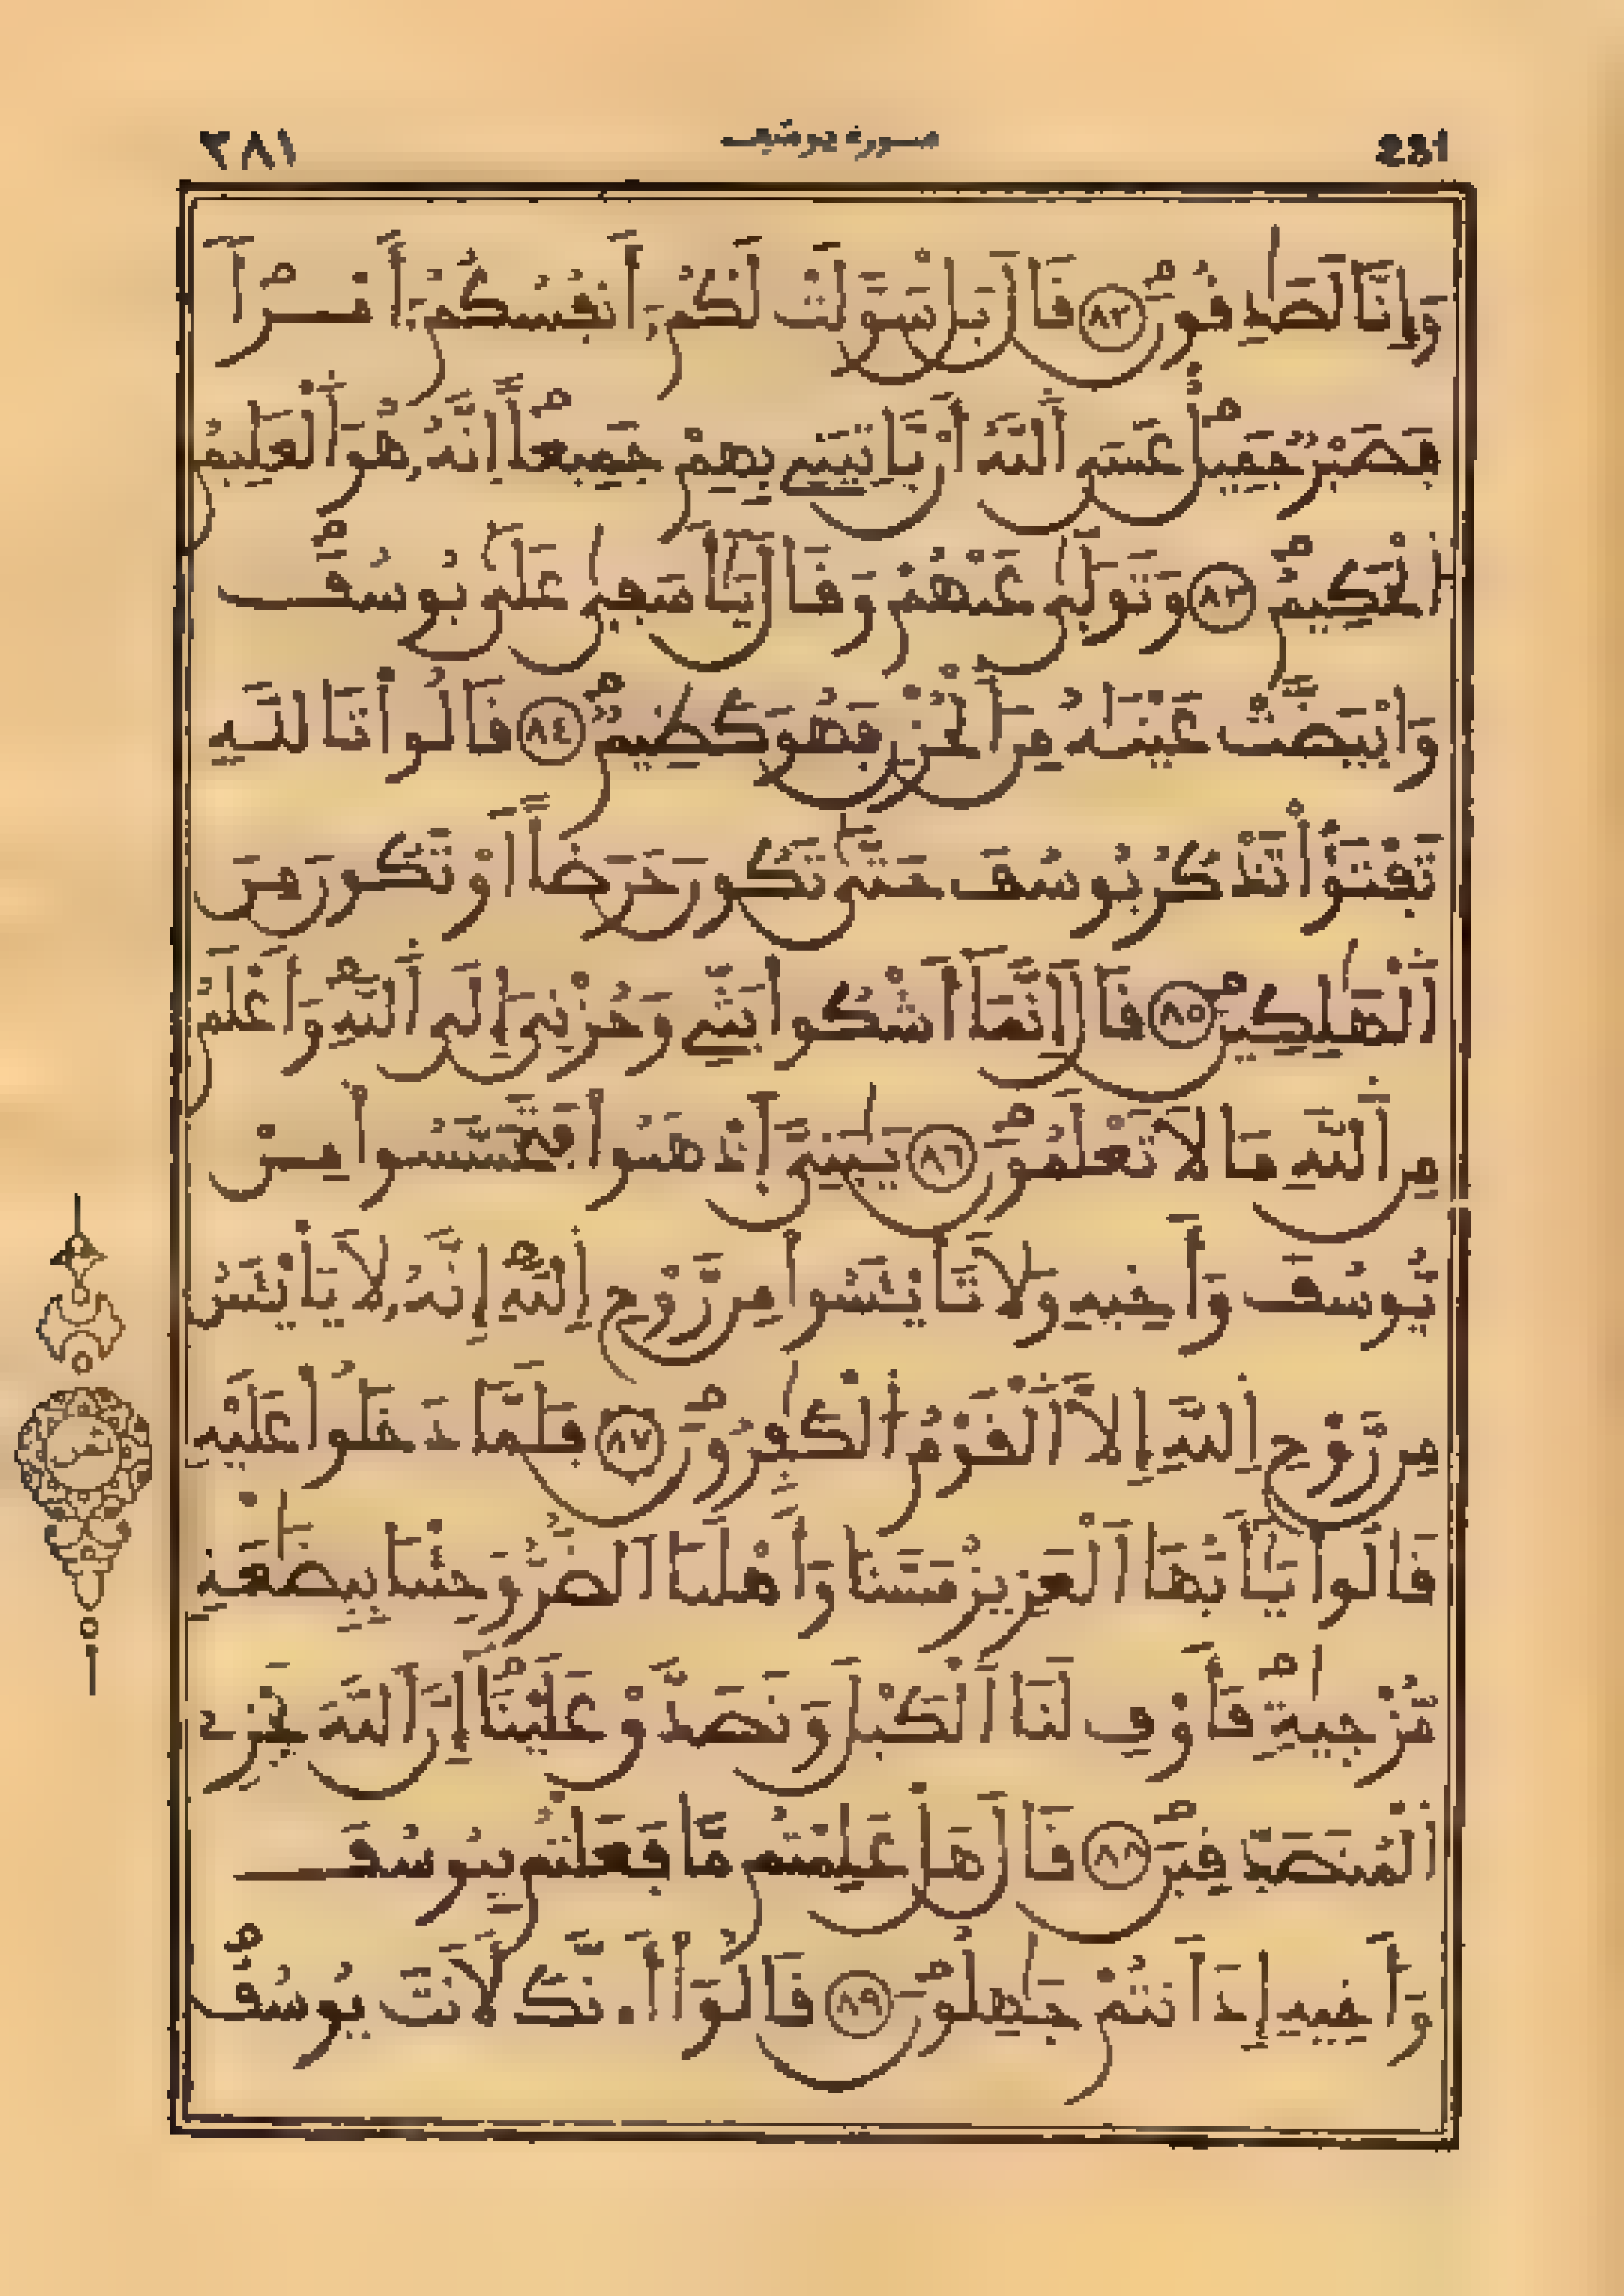 ٢٨١ سورة يوسف 231
وَإِنَّا لَصَٰدِقُونَ ٨٢ قَالَ بَلْ سَوَّلَتْ لَكُمُۥٓ أَنفُسُكُمُۥٓ أَمْرًا
فَصَبْرٌ جَمِيلٌ عَسَى اَللَّهُ أَنْ يَّاتِيَنِے بِهِمْ جَمِيعًا اِنَّهُۥ هُوَ اَلْعَلِيمُ
اُلْحَكِيمُ ٨٣ وَتَوَلَّىٰ عَنْهُمْ وَقَالَ يَٰٓأَسَفِىٰ عَلَىٰ يُوسُفَ
وَابْيَضَّتْ عَيْنَٰهُ مِنَ اَلْحُزْنِ فَهُوَ كَظِيمٌ ٨٤ قَالُواْ تَاللَّهِ
تَفْتَؤُاْ تَذْكُرُ يُوسُفَ حَتَّىٰ تَكُونَ حَرَضًا اَوْ تَكُونَ مِنَ
اَلْهَٰلِكِينَ ٨٥ قَالَ إِنَّمَآ أَشْكُواْ بَثِّے وَحُزْنِيَ إِلَى اَللَّهِ وَأَعْلَمُ
مِنَ اَللَّهِ مَا لَا تَعْلَمُونَ ٨٦ يَٰبَنِيَّ اَذْهَبُواْ فَتَحَسَّسُواْ مِنْ
يُوسُفَ وَأَخِيهِ وَلَا تَاْيْـَٔسُواْ مِن رَّوْحِ اِللَّهِ إِنَّهُۥ لَا يَاْيْـَٔسُ
مِن رَّوْحِ اِللَّهِ إِلَّا اَلْقَوْمُ اُلْكَٰفِرُونَ ٨٧ فَلَمَّا دَخَلُواْ عَلَيْهِ
قَالُواْ يَٰٓأَيُّهَا اَلْعَزِيزُ مَسَّنَا وَأَهْلَنَا اَلضُّرُّ وَجِئْنَا بِبِضَٰعَةٍ
مُّزْجَيٰةٍ فَأَوْفِ لَنَا اَلْكَيْلَ وَتَصَدَّقْ عَلَيْنَآ إِنَّ اَللَّهَ يَجْزِے
اِلْمُتَصَدِّقِينَ ٨٨ قَالَ هَلْ عَلِمْتُم مَّا فَعَلْتُم بِيُوسُفَ
وَأَخِيهِ إِذَ اَنتُمْ جَٰهِلُونَ ٨٩ قَالُوٓاْ أَ.نَّكَ لَأَنتَ يُوسُفُ